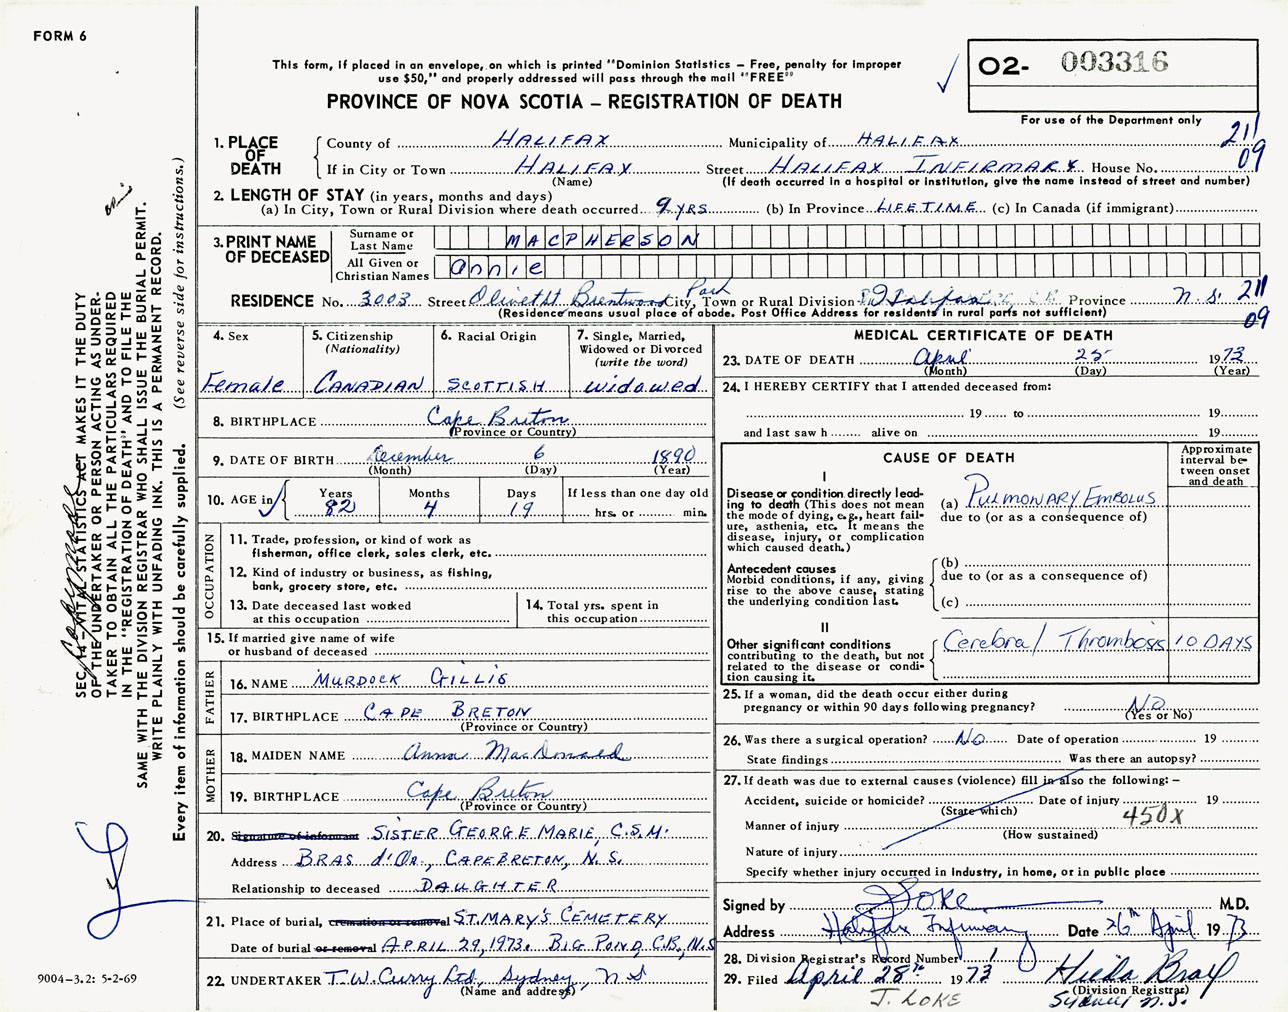 FORM 6
This form, if placed in an envelope, on which is printed "Dominion Statistics – Free, penalty for improper
use $50," and properly addressed will pass through the mail "FREE"
PROVINCE OF NOVA SCOTIA – REGISTRATION OF DEATH
O2- 003316
For use of the Department only
211
09
1. PLACE OF DEATH
County of HALIFAX Municipality of HALIFAX
If in City or Town HALIFAX Street HALIFAX INFIRMARY House No.
(Name) (If death occurred in a hospital or institution, give the name instead of street and number)
2. LENGTH OF STAY (in years, months and days)
(a) In City, Town or Rural Division where death occurred 9 YRS (b) In Province LIFETIME (c) In Canada (if immigrant)
3. PRINT NAME OF DECEASED
Surname or Last Name MACPHERSON
All Given or Christian Names Annie
RESIDENCE No. 3003 Street Olivet St Brentwood Park City, Town or Rural Division Halifax Province N.S. 211
(Residence means usual place of abode. Post Office Address for residents in rural parts not sufficient) 09
4. Sex
Female
5. Citizenship
(Nationality)
CANADIAN
6. Racial Origin
SCOTTISH
7. Single, Married,
Widowed or Divorced
(write the word)
widowed
8. BIRTHPLACE Cape Breton
(Province or Country)
9. DATE OF BIRTH December 6 1890
(Month) (Day) (Year)
10. AGE in Years Months Days If less than one day old
82 4 19 hrs. or min.
OCCUPATION
11. Trade, profession, or kind of work as
fisherman, office clerk, sales clerk, etc.
12. Kind of industry or business, as fishing,
bank, grocery store, etc.
13. Date deceased last worked
at this occupation
14. Total yrs. spent in
this occupation
15. If married give name of wife
or husband of deceased
FATHER
16. NAME MURDOCK GILLIS
17. BIRTHPLACE CAPE BRETON
(Province or Country)
MOTHER
18. MAIDEN NAME Anna MacDonald
19. BIRTHPLACE Cape Breton
(Province or Country)
20. Signature of informant SISTER GEORGE MARIE, C.S.M.
Address BRAS d'Or, CAPE BRETON, N.S.
Relationship to deceased DAUGHTER
21. Place of burial, cremation or removal ST. MARY'S CEMETERY
Date of burial or removal APRIL 29, 1973. BIG POND, C.B., N.S
22. UNDERTAKER T.W. Curry Ltd, Sydney, N S
(Name and address)
MEDICAL CERTIFICATE OF DEATH
23. DATE OF DEATH April 25 1973
(Month) (Day) (Year)
24. I HEREBY CERTIFY that I attended deceased from:
19 to 19
and last saw h alive on 19
CAUSE OF DEATH
Approximate
interval be-
tween onset
and death
I
Disease or condition directly lead-
ing to death (This does not mean
the mode of dying, e.g., heart fail-
ure, asthenia, etc. It means the
disease, injury, or complication
which caused death.)
(a) PULMONARY EMBOLUS
due to (or as a consequence of)
Antecedent causes
Morbid conditions, if any, giving
rise to the above cause, stating
the underlying condition last.
(b)
due to (or as a consequence of)
(c)
II
Other significant conditions
contributing to the death, but not
related to the disease or condi-
tion causing it.
Cerebral Thrombosis 10 DAYS
25. If a woman, did the death occur either during
pregnancy or within 90 days following pregnancy? No
(Yes or No)
26. Was there a surgical operation? No Date of operation 19
State findings Was there an autopsy?
27. If death was due to external causes (violence) fill in also the following: –
Accident, suicide or homicide? Date of injury 19
(State which)
450X
Manner of injury
(How sustained)
Nature of injury
Specify whether injury occurred in Industry, in home, or in public place
Signed by J Loke M.D.
Address Halifax Infirmary Date 26th April 1973
28. Division Registrar's Record Number 1
29. Filed April 28th 1973 Hilda Bray
(Division Registrar)
J. LOKE Sydney N.S.
SEC. 14 – VITAL STATISTICS ACT MAKES IT THE DUTY
OF THE UNDERTAKER OR PERSON ACTING AS UNDER-
TAKER TO OBTAIN ALL THE PARTICULARS REQUIRED
IN THE "REGISTRATION OF DEATH" AND TO FILE THE
SAME WITH THE DIVISION REGISTRAR WHO SHALL ISSUE THE BURIAL PERMIT.
WRITE PLAINLY WITH UNFADING INK. THIS IS A PERMANENT RECORD.
Every item of information should be carefully supplied. (See reverse side for instructions.)
9004-3.2: 5-2-69